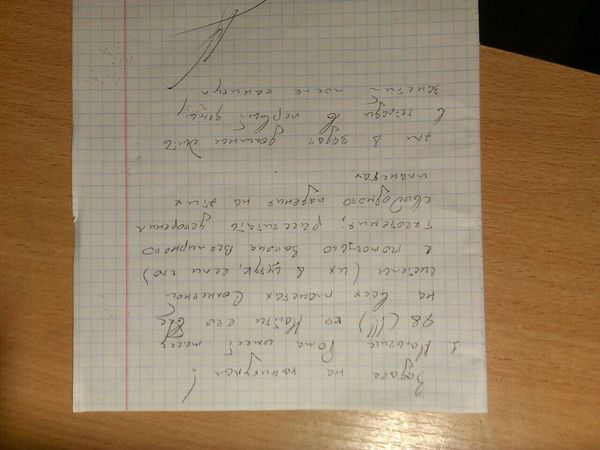 Задача на каникулы!
1. Мальчик Рома имеет массу
98 (!!!) кг Найти его вес
на всех планетах Солнечной
системы (их 8 штук, если что)
с помощью Закона Всемирного
тяготения; рассчитать ускорения
свободного падения на этих
планетах
эти 8 задач должны быть
в тетради в первый день
занятий после каникул.